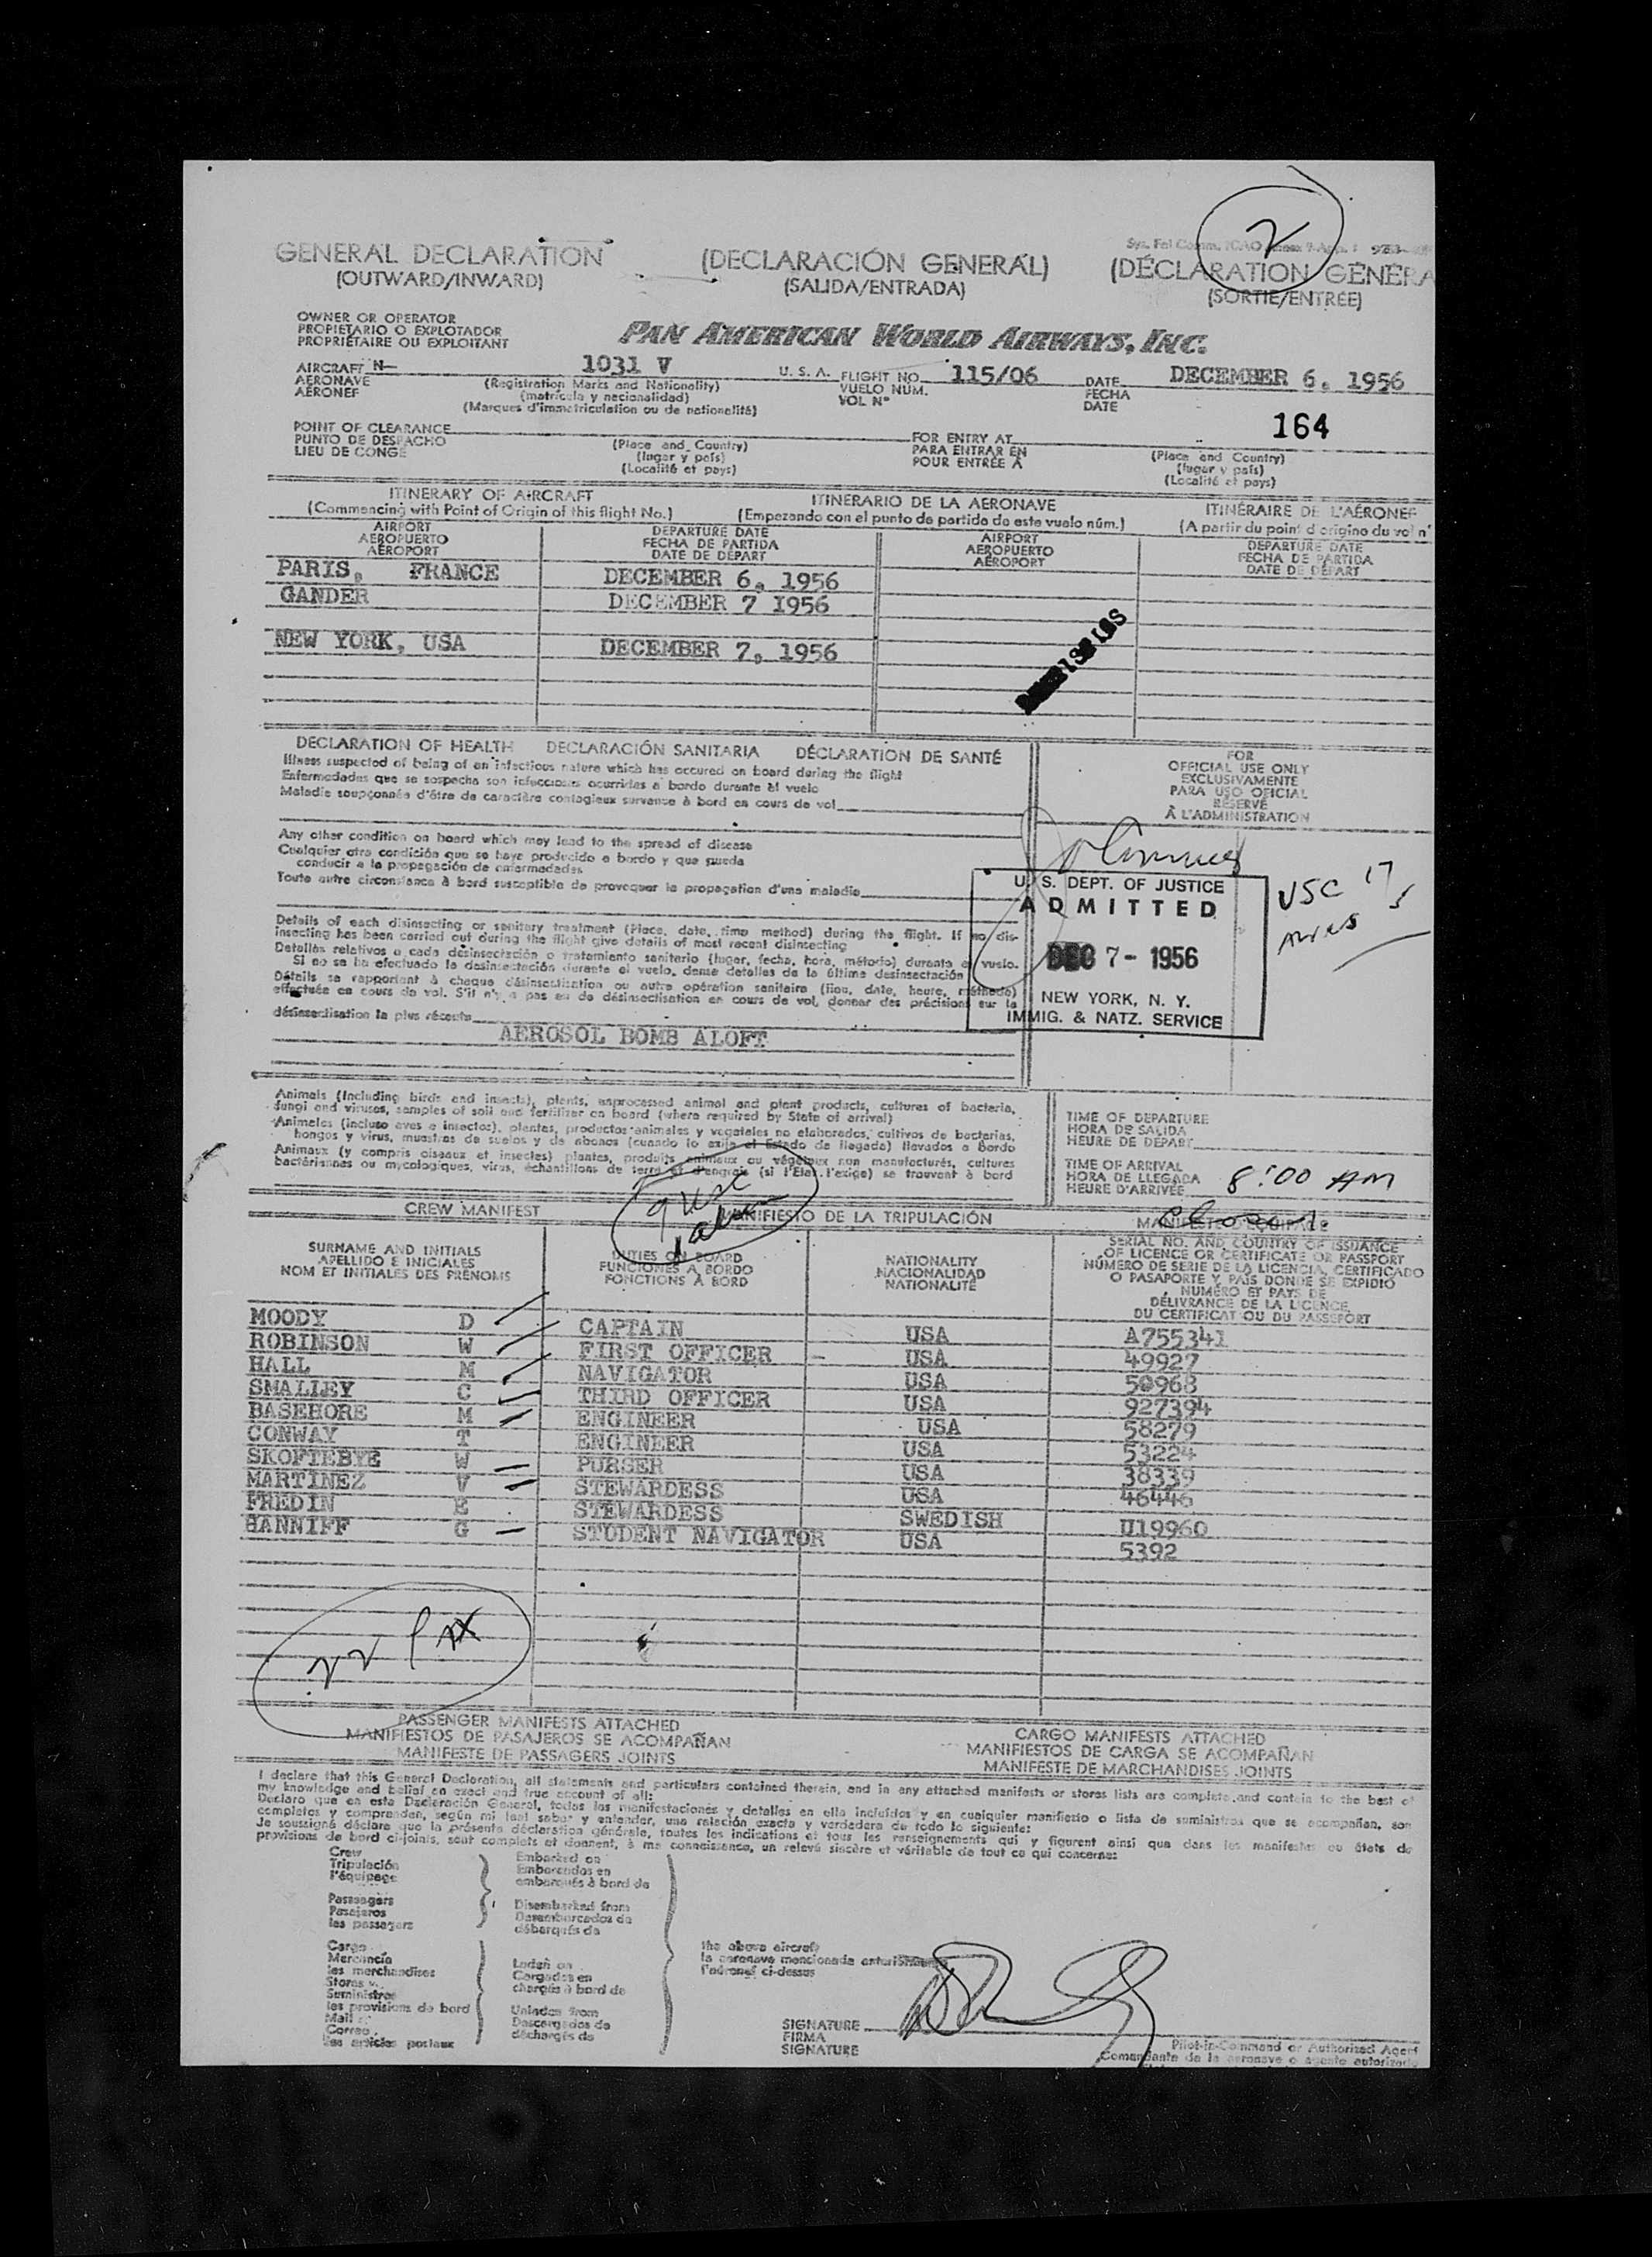 2
GENERAL DECLARATION (DECLARACIÓN GENERAL) (DÉCLARATION GÉNÉRA
(OUTWARD/INWARD) (SALIDA/ENTRADA) (SORTIE/ENTRÉE)
OWNER OR OPERATOR
PROPIETARIO O EXPLOTADOR
PROPRIÉTAIRE OU EXPLOITANT
PAN AMERICAN WORLD AIRWAYS, INC.
AIRCRAFT N- 1031 V U. S. A. FLIGHT NO. 115/06 DATE DECEMBER 6, 1956
AERONAVE (Registration Marks and Nationality) VUELO NÚM. FECHA
AÉRONEF (matrícula y nacionalidad) VOL N° DATE
(Marques d'immatriculation ou de nationalité)
164
POINT OF CLEARANCE FOR ENTRY AT
PUNTO DE DESPACHO (Place and Country) PARA ENTRAR EN (Place and Country)
LIEU DE CONGÉ (lugar y país) POUR ENTRÉE À (lugar y país)
(Localité et pays) (Localité et pays)
ITINERARY OF AIRCRAFT ITINERARIO DE LA AERONAVE ITINÉRAIRE DE L'AÉRONEF
(Commencing with Point of Origin of this flight No.) (Empezando con el punto de partida de este vuelo núm.) (A partir du point d'origine du vol n°
AIRPORT DEPARTURE DATE AIRPORT DEPARTURE DATE
AEROPUERTO FECHA DE PARTIDA AEROPUERTO FECHA DE PARTIDA
AÉROPORT DATE DE DÉPART AÉROPORT DATE DE DÉPART
PARIS, FRANCE DECEMBER 6, 1956
GANDER DECEMBER 7 1956
NEW YORK, USA DECEMBER 7, 1956
DECLARATION OF HEALTH DECLARACIÓN SANITARIA DÉCLARATION DE SANTÉ
Illness suspected of being of an infectious nature which has occured on board during the flight
Enfermedades que se sospecha son infecciosas ocurridas a bordo durante el vuelo
Maladie soupçonnée d'être de caractère contagieux survenue à bord en cours de vol
FOR
OFFICIAL USE ONLY
EXCLUSIVAMENTE
PARA USO OFICIAL
RÉSERVÉ
À L'ADMINISTRATION
Any other condition on board which may lead to the spread of disease
Cualquier otra condición que se haya producido a bordo y que pueda
conducir a la propagación de enfermedades
Toute autre circonstance à bord susceptible de provoquer la propagation d'une maladie
U. S. DEPT. OF JUSTICE
ADMITTED
DEC 7 - 1956
NEW YORK, N. Y.
IMMIG. & NATZ. SERVICE
USC
Details of each disinsecting or sanitary treatment (Place, date, time method) during the flight. If no dis-
insecting has been carried out during the flight give details of most recent disinsecting
Detalles relativos a cada desinsectación o tratamiento sanitario (lugar, fecha, hora, método) durante el vuelo.
Si no se ha efectuado la desinsectación durante el vuelo, dense detalles de la última desinsectación
Détails se rapportant à chaque désinsectisation ou autre opération sanitaire (lieu, date, heure, méthode)
effectuée en cours de vol. S'il n'y a pas eu de désinsectisation en cours de vol, donner des précisions sur la
désinsectisation la plus récente
AEROSOL BOMB ALOFT
Animals (Including birds and insects), plants, unprocessed animal and plant products, cultures of bacteria,
fungi and viruses, samples of soil and fertilizer on board (where required by State of arrival)
Animales (incluso aves e insectos), plantas, productos animales y vegetales no elaborados, cultivos de bacterias,
hongos y virus, muestras de suelos y de abonos (cuando lo exija el Estado de llegada) llevados a Bordo
Animaux (y compris oiseaux et insectes) plantes, produits animaux ou végétaux non manufacturés, cultures
bactériennes ou mycologiques, virus, échantillons de terre et d'engrais (si l'Etat l'exige) se trouvant à bord
TIME OF DEPARTURE
HORA DE SALIDA
HEURE DE DÉPART
TIME OF ARRIVAL
HORA DE LLEGADA 8:00 AM
HEURE D'ARRIVÉE
CREW MANIFEST MANIFIESTO DE LA TRIPULACIÓN
SURNAME AND INITIALS DUTIES ON BOARD NATIONALITY SERIAL NO. AND COUNTRY OF ISSUANCE
APELLIDO E INICIALES FUNCIONES A BORDO NACIONALIDAD OF LICENCE OR CERTIFICATE OR PASSPORT
NOM ET INITIALES DES PRÉNOMS FONCTIONS À BORD NATIONALITÉ NÚMERO DE SERIE DE LA LICENCIA, CERTIFICADO
O PASAPORTE Y PAÍS DONDE SE EXPIDIÓ
NUMÉRO ET PAYS DE
DÉLIVRANCE DE LA LICENCE,
DU CERTIFICAT OU DU PASSEPORT
MOODY D CAPTAIN USA A755341
ROBINSON W FIRST OFFICER USA 49927
HALL M NAVIGATOR USA 50968
SMALLEY C THIRD OFFICER USA 927394
BASEHORE M ENGINEER USA 58279
CONWAY T ENGINEER USA 53224
SKOFTEBYE W PURSER USA 38339
MARTINEZ V STEWARDESS USA 46446
FREDIN E STEWARDESS SWEDISH U19960
HANNIFF G STUDENT NAVIGATOR USA 5392
22 Pax
PASSENGER MANIFESTS ATTACHED CARGO MANIFESTS ATTACHED
MANIFIESTOS DE PASAJEROS SE ACOMPAÑAN MANIFIESTOS DE CARGA SE ACOMPAÑAN
MANIFESTE DE PASSAGERS JOINTS MANIFESTE DE MARCHANDISES JOINTS
I declare that this General Declaration, all statements and particulars contained therein, and in any attached manifests or stores lists are complete and contain to the best of
my knowledge and belief an exact and true account of all:
Declaro que en esta Declaración General, todas las manifestaciones y detalles en ella incluídos y en cualquier manifiesto o lista de suministros que se acompañan, son
completos y comprenden, según mi leal saber y entender, una relación exacta y verdadera de todo lo siguiente:
Je soussigné déclare que la présente déclaration générale, toutes les indications et tous les renseignements qui y figurent ainsi que dans les manifestes ou états de
provisions de bord ci-joints, sont complets et donnent, à ma connaissance, un relevé sincère et véritable de tout ce qui concerne:
Crew Embarked on
Tripulación Embarcados en
l'équipage embarqués à bord de
Passengers Disembarked from
Pasajeros Desembarcados de
les passagers débarqués de
Cargo
Mercancía
les merchandises
Stores
Suministros
les provisions de bord
Mail
Correo
les articles postaux
Laden on
Cargados en
chargés à bord de
Unladen from
Descargados de
déchargés de
the above aircraft
la aeronave mencionada anteriormente
l'aéronef ci-dessus
SIGNATURE
FIRMA
SIGNATURE
Pilot-in-Command or Authorized Agent
Comandante de la aeronave o agente autorizado